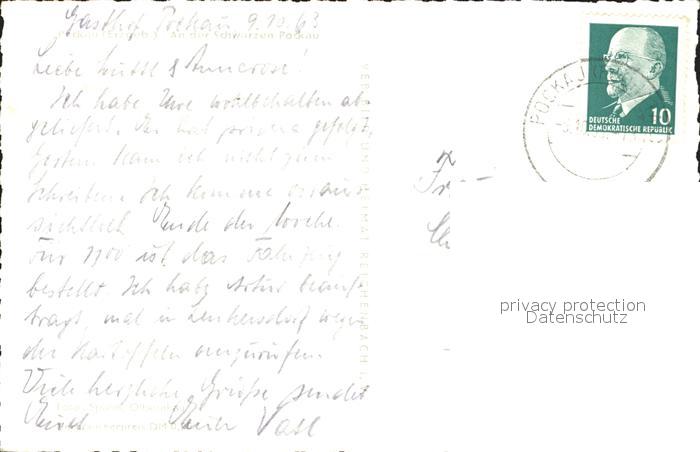 Gasthof Pockau 9.10.63
Pockau (Erzgeb.) An der Schwarzen Pockau
Liebe & Annerose!
Ich habe Uwe wohlbehalten ab-
geliefert. Es hat prima geklappt.
Gestern kam ich nicht zum
Schreiben. Ich komme voraus-
sichtlich Ende der Woche.
Für 1700 ist das Fahrzeug
bestellt. Ich habe Artur beauf-
tragt, mal in Lenkersdorf wegen
der Kartoffeln anzurufen.
Viele herzliche Grüße sendet
Euch Euer Vati
VERLAG HEIMAT REICHENBACH
Foto:
DEUTSCHE
DEMOKRATISCHE REPUBLIK
10
POCKAU
Fr.
privacy protection
Datenschutz